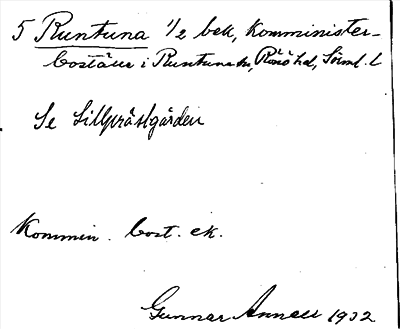 5 Runtuna 1/2 bek, Komminister-
boställe i Runtuna sn, Rönö hd, Söml. L
Se Lillprästgården
Kommin. bost. ek.
Gunnar Annell 1932